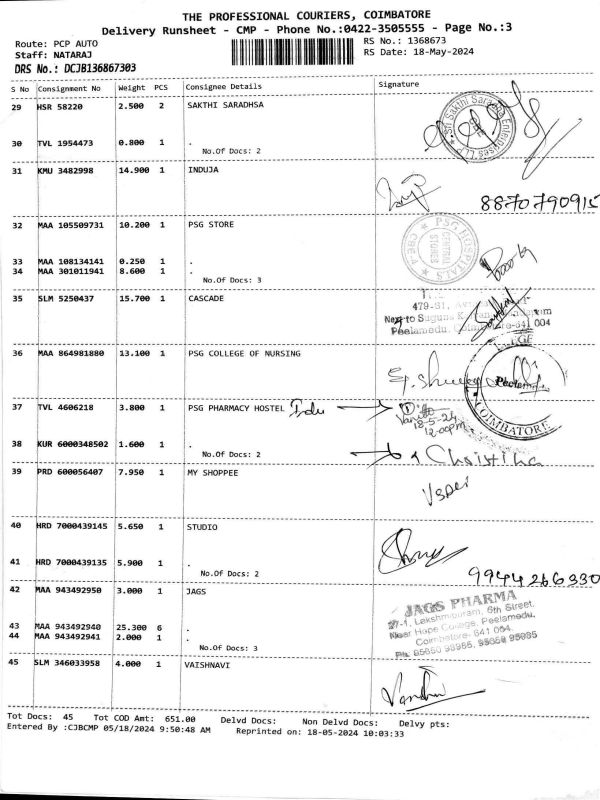 THE PROFESSIONAL COURIERS, COIMBATORE
Delivery Runsheet - CMP - Phone No.:0422-3505555 - Page No.:3
Route: PCP AUTO RS No.: 1368673
Staff: NATARAJ RS Date: 18-May-2024
DRS No.: DCJB136867303
S No Consignment No Weight PCS Consignee Details Signature
29 HSR 58220 2.500 2 SAKTHI SARADHSA
Sri Sakthi Saradha Enterprises LLP
30 TVL 1954473 0.800 1 .
No.Of Docs: 2
31 KMU 3482998 14.900 1 INDUJA
8870790915
32 MAA 105509731 10.200 1 PSG STORE
PSG HOSPITALS
CENTRAL STORES
33 MAA 108134141 0.250 1 .
34 MAA 301011941 8.600 1 .
No.Of Docs: 3
35 SLM 5250437 15.700 1 CASCADE
Peelamedu,
36 MAA 864981880 13.100 1 PSG COLLEGE OF NURSING
COIMBATORE
37 TVL 4606218 3.800 1 PSG PHARMACY HOSTEL Indu
18-5-24
12.00pm
38 KUR 6000348502 1.600 1 .
No.Of Docs: 2
Christina
39 PRD 600056407 7.950 1 MY SHOPPEE
40 HRD 7000439145 5.650 1 STUDIO
41 HRD 7000439135 5.900 1 .
No.Of Docs: 2
9944266330
42 MAA 943492950 3.000 1 JAGS
JAGS PHARMA
27-1, Lakshmipuram, 6th Street,
Near Hope College, Peelamedu,
Coimbatore- 641 004.
43 MAA 943492940 25.300 6 .
44 MAA 943492941 2.000 1 .
No.Of Docs: 3
45 SLM 346033958 4.000 1 VAISHNAVI
Tot Docs: 45 Tot COD Amt: 651.00 Delvd Docs: Non Delvd Docs: Delvy pts:
Entered By :CJBCMP 05/18/2024 9:50:48 AM Reprinted on: 18-05-2024 10:03:33